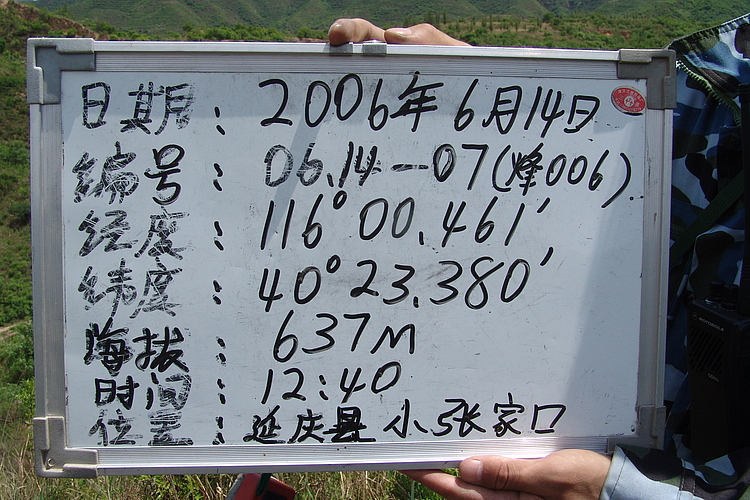 日期：2006年6月14日
编号：06.14—07(烽006)
经度：116°00.461′
纬度：40°23.380′
海拔：637M
时间：12:40
位置：延庆县 小张家口
MOTOROLA